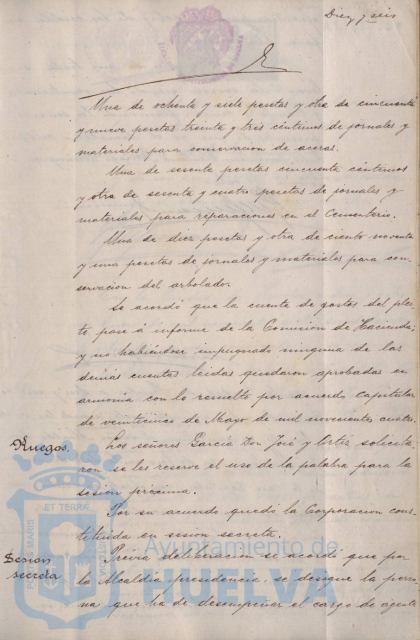 Diez y seis
Una de ochenta y siete pesetas y otra de cincuenta
y nueve pesetas treinta y tres céntimos de jornales y
materiales para conservacion de aceras.
Una de sesenta pesetas cincuenta céntimos
y otra de sesenta y cuatro pesetas de jornales y
materiales para reparaciones en el Cementerio.
Una de diez pesetas y otra de ciento noventa
y una pesetas de jornales y materiales para con-
servacion del arbolado.
Se acordó que la cuenta de gastos del plei-
to pase á informe de la Comision de Hacienda;
y no habiéndose impugnado ninguna de las
demás cuentas leidas quedaron aprobadas en
armonía con lo resuelto por acuerdo capitular
de veinticinco de Mayo de mil novecientos cuatro.
Ruegos. Los señores García Don José y Cortés solicita-
ron se les reserve el uso de la palabra para la
sesión próxima.
Por su acuerdo quedó la Corporacion cons-
tituida en sesion secreta.
Sesion secreta Prévia deliberacion se acordó que por
la Alcaldía presidencia se designe la perso-
na que ha de desempeñar el cargo de agente
PORTUS MARIS ET TERRÆ CUSTODIA
Ayuntamiento de
HUELVA